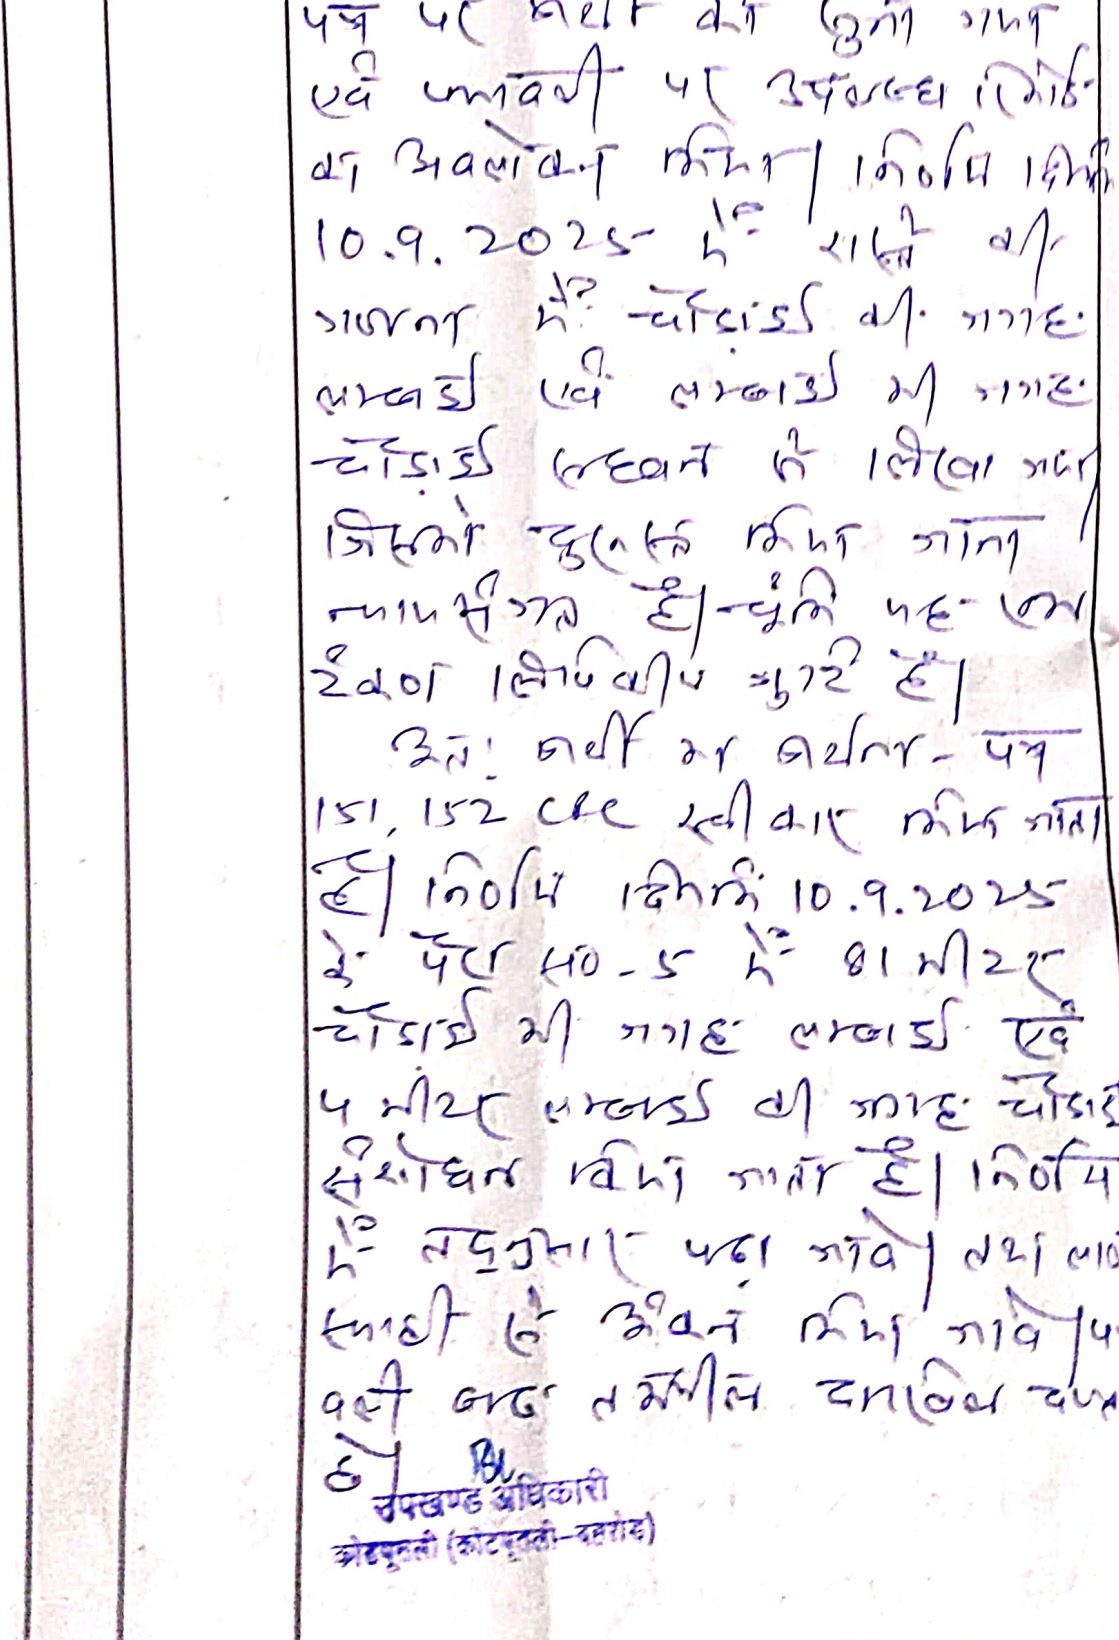 पत्र पर प्रार्थी को सुना गया
एवं पत्रावली पर उपलब्ध रिकॉर्ड
का अवलोकन किया। निर्णय दिनांक
10.9.2025 में रास्ते की
गणना में चौड़ाई की जगह
लम्बाई एवं लम्बाई की जगह
चौड़ाई सहवन से लिखा गया
जिसको दुरूस्त किया जाना
न्यायसंगत है। चूंकि यह एक
टंकण लिपिकीय त्रुटि है।
अतः प्रार्थी का प्रार्थना-पत्र
151, 152 CPC स्वीकार किया जाता
है। निर्णय दिनांक 10.9.2025
के पैरा सं0-5 में 81 मीटर
चौड़ाई की जगह लम्बाई एवं
4 मीटर लम्बाई की जगह चौड़ाई
संशोधन किया जाता है। निर्णय
में तद्नुसार पढ़ा जावे। तथा लाल
स्याही से अंकन किया जावे। प
वली बाद तकमील दाखिल दफ्त
हो।
उपखण्ड अधिकारी
कोटपूतली (कोटपूतली-बहरोड़)